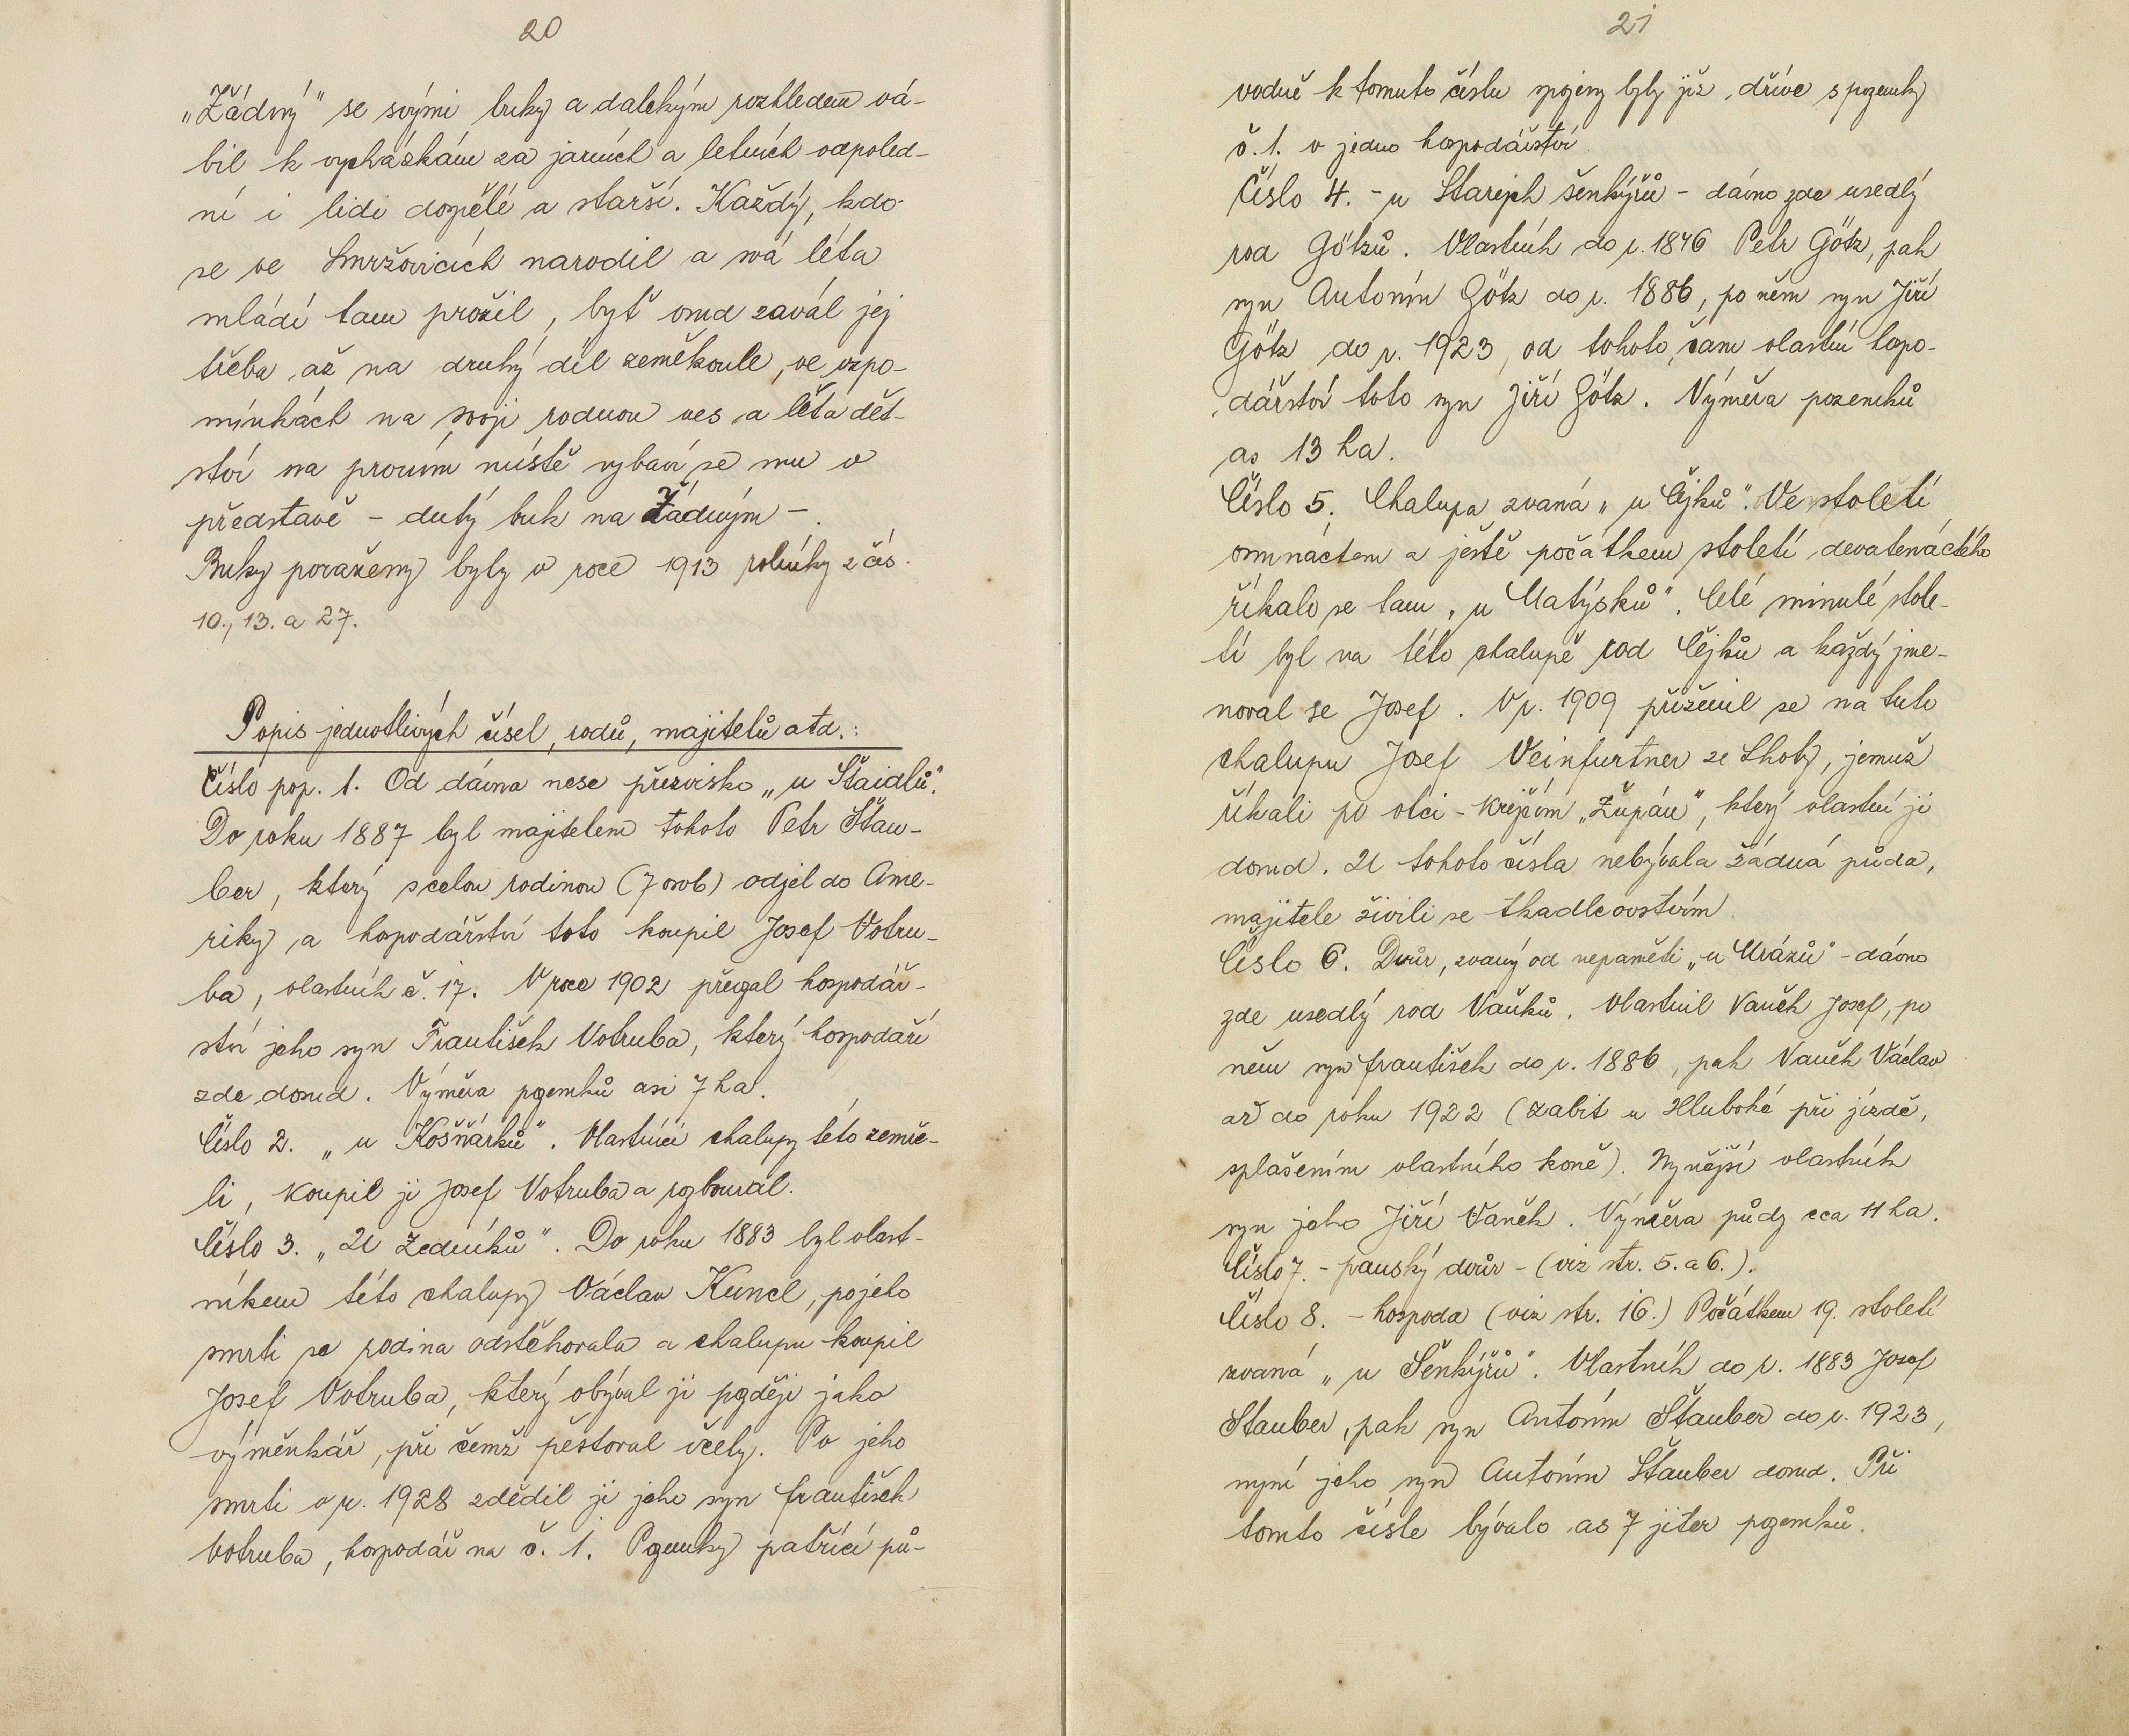 20
„Žádný" se svými buky a dalekým rozhledem vá-
bil k vycházkám za jarních a letních odpoled-
ní i lidi dospělé a starší. Každý, kdo
se ve Smržovicích narodil a svá léta
mládí tam prožil, byť osud zavál jej
třeba až na druhý díl zeměkoule, ve vzpo-
mínkách na svoji rodnou ves a léta dět-
ství na prvním místě vybaví se mu v
představě - dutý buk na Žádným -.
Buky poraženy byly v roce 1913 rolníky z čís.
10., 13. a 27.
Popis jednotlivých čísel, rodů, majitelů atd.:
Číslo pop. 1. Od dávna nese přezvisko „u Štaidlů".
Do roku 1887 byl majitelem tohoto Petr Štau-
ber, který s celou rodinou (7 osob) odjel do Ame-
riky a hospodářství toto koupil Josef Votru-
ba, vlastník č. 17. V roce 1902 přejal hospodář-
ství jeho syn František Votruba, který hospodaří
zde dosud. Výměra pozemků asi 7 ha.
Číslo 2. „u Košňárků". Vlastníci chalupy této zemře-
li, koupil ji Josef Votruba a rozboural.
Číslo 3. „U Zedníků". Do roku 1883 byl vlast-
níkem této chalupy Václav Kuncl, po jeho
smrti se rodina odstěhovala a chalupu koupil
Josef Votruba, který obýval ji později jako
výměnkář, při čemž pěstoval včely. Po jeho
smrti v r. 1928 zdědil ji jeho syn František
Votruba, hospodář na č. 1. Pozemky patřící pů-
21
vodně k tomuto číslu spojeny byly již dříve s pozemky
č. 1. v jedno hospodářství.
Číslo 4. - u Starejch šenkýřů - dávno zde usedlý
rod Götzů. Vlastník do r. 1846 Petr Götz, pak
syn Antonín Götz do r. 1886, po něm syn Jiří
Götz do r. 1923, od tohoto času vlastní hospo-
dářství toto syn Jiří Götz. Výměra pozemků
as 13 ha.
Číslo 5. Chalupa zvaná „u Čejků". Ve století
osmnáctem a ještě počátkem století devatenáctého
říkalo se tam „u Matýsků". Celé minulé stole-
tí byl na této chalupě rod Čejků a každý jme-
noval se Josef. V r. 1909 přiženil se na tuto
chalupu Josef Veinfurtner ze Lhoty, jemuž
říkali po otci - krejčím „Župán", který vlastní ji
dosud. U tohoto čísla nebývala žádná půda,
majitele živili se tkadlcovstvím.
Číslo 6. Dvůr, zvaný od nepaměti „u Mrázů" - dávno
zde usedlý rod Vaňků. Vlastnil Vaněk Josef, po
něm syn František do r. 1886, pak Vaněk Václav
až do roku 1922 (zabit u Hluboké při jízdě,
splašením vlastního koně). Nynější vlastník
syn jeho Jiří Vaněk. Výměra půdy cca 11 ha.
Číslo 7. - panský dvůr - (viz str. 5. a 6.).
Číslo 8. - hospoda (viz str. 16.) Počátkem 19. století
zvaná „u Šenkýřů". Vlastník do r. 1883 Josef
Štauber, pak syn Antonín Štauber do r. 1923,
nyní jeho syn Antonín Štauber dosud. Při
tomto čísle bývalo as 7 jiter pozemků.